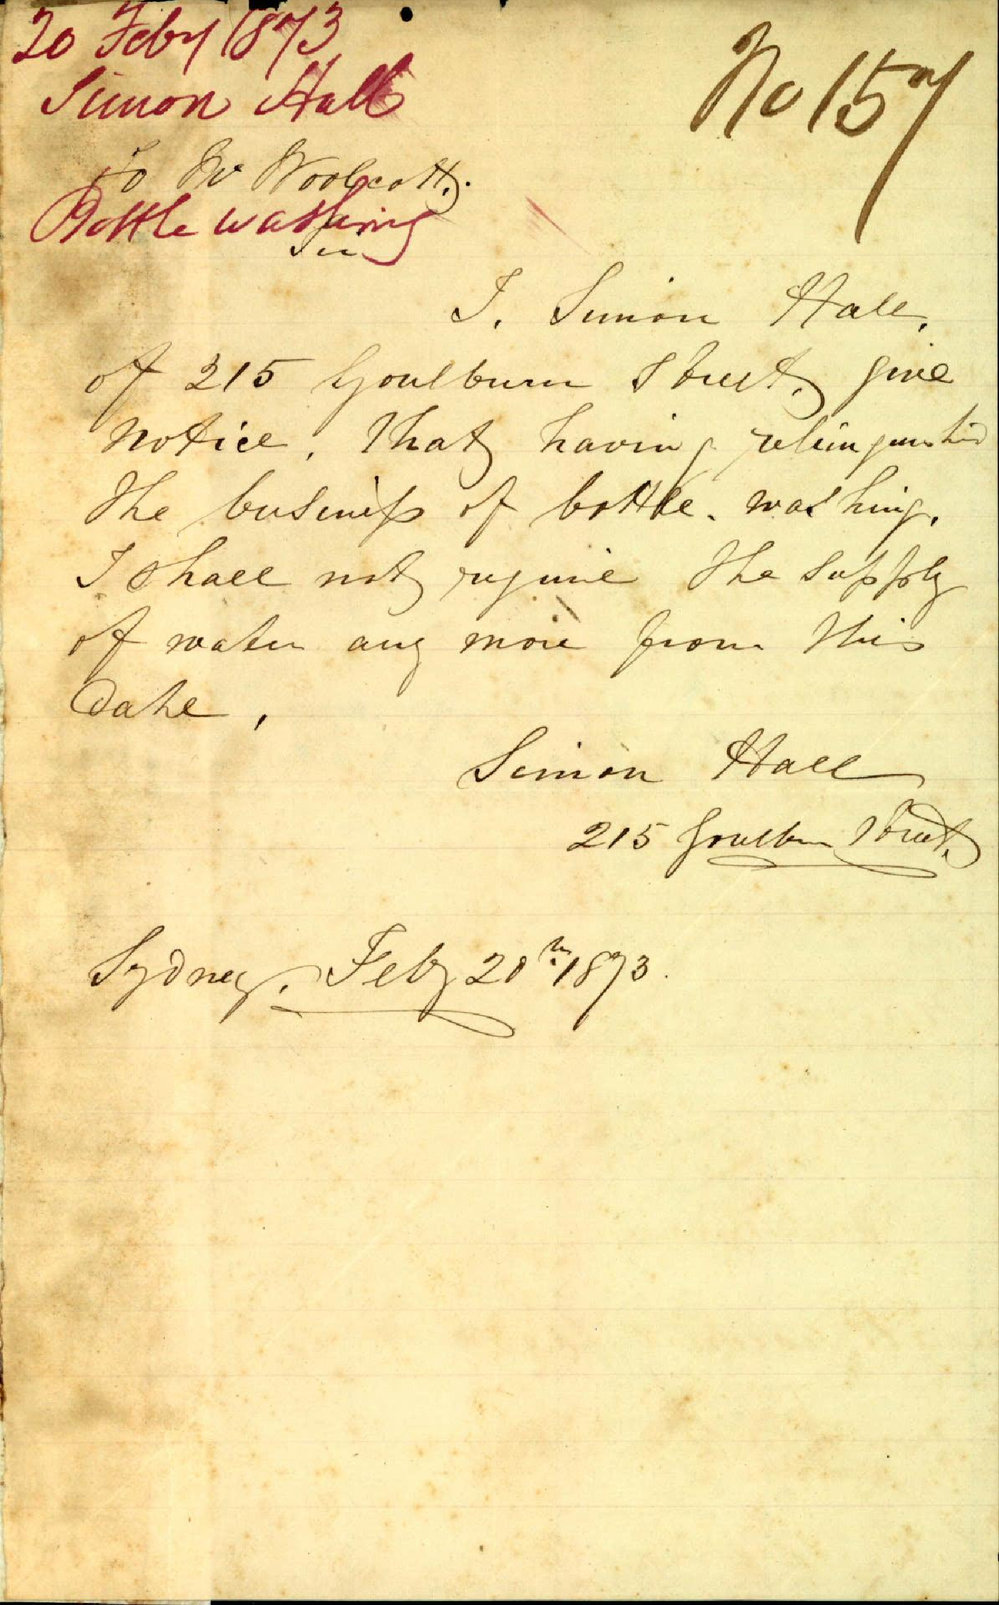 20 Feby 1873
No 157
Simon Hall
To Mr Woolcott.
Bottle washing
Sir
I. Simon Hall,
of 215 Goulburn Street, give
notice, that having relinquished
the business of bottle. washing,
I shall not require the supply
of water any more from this
date,
Simon Hall
215 Goulburn Street,
Sydney, Feby 20th 1873.